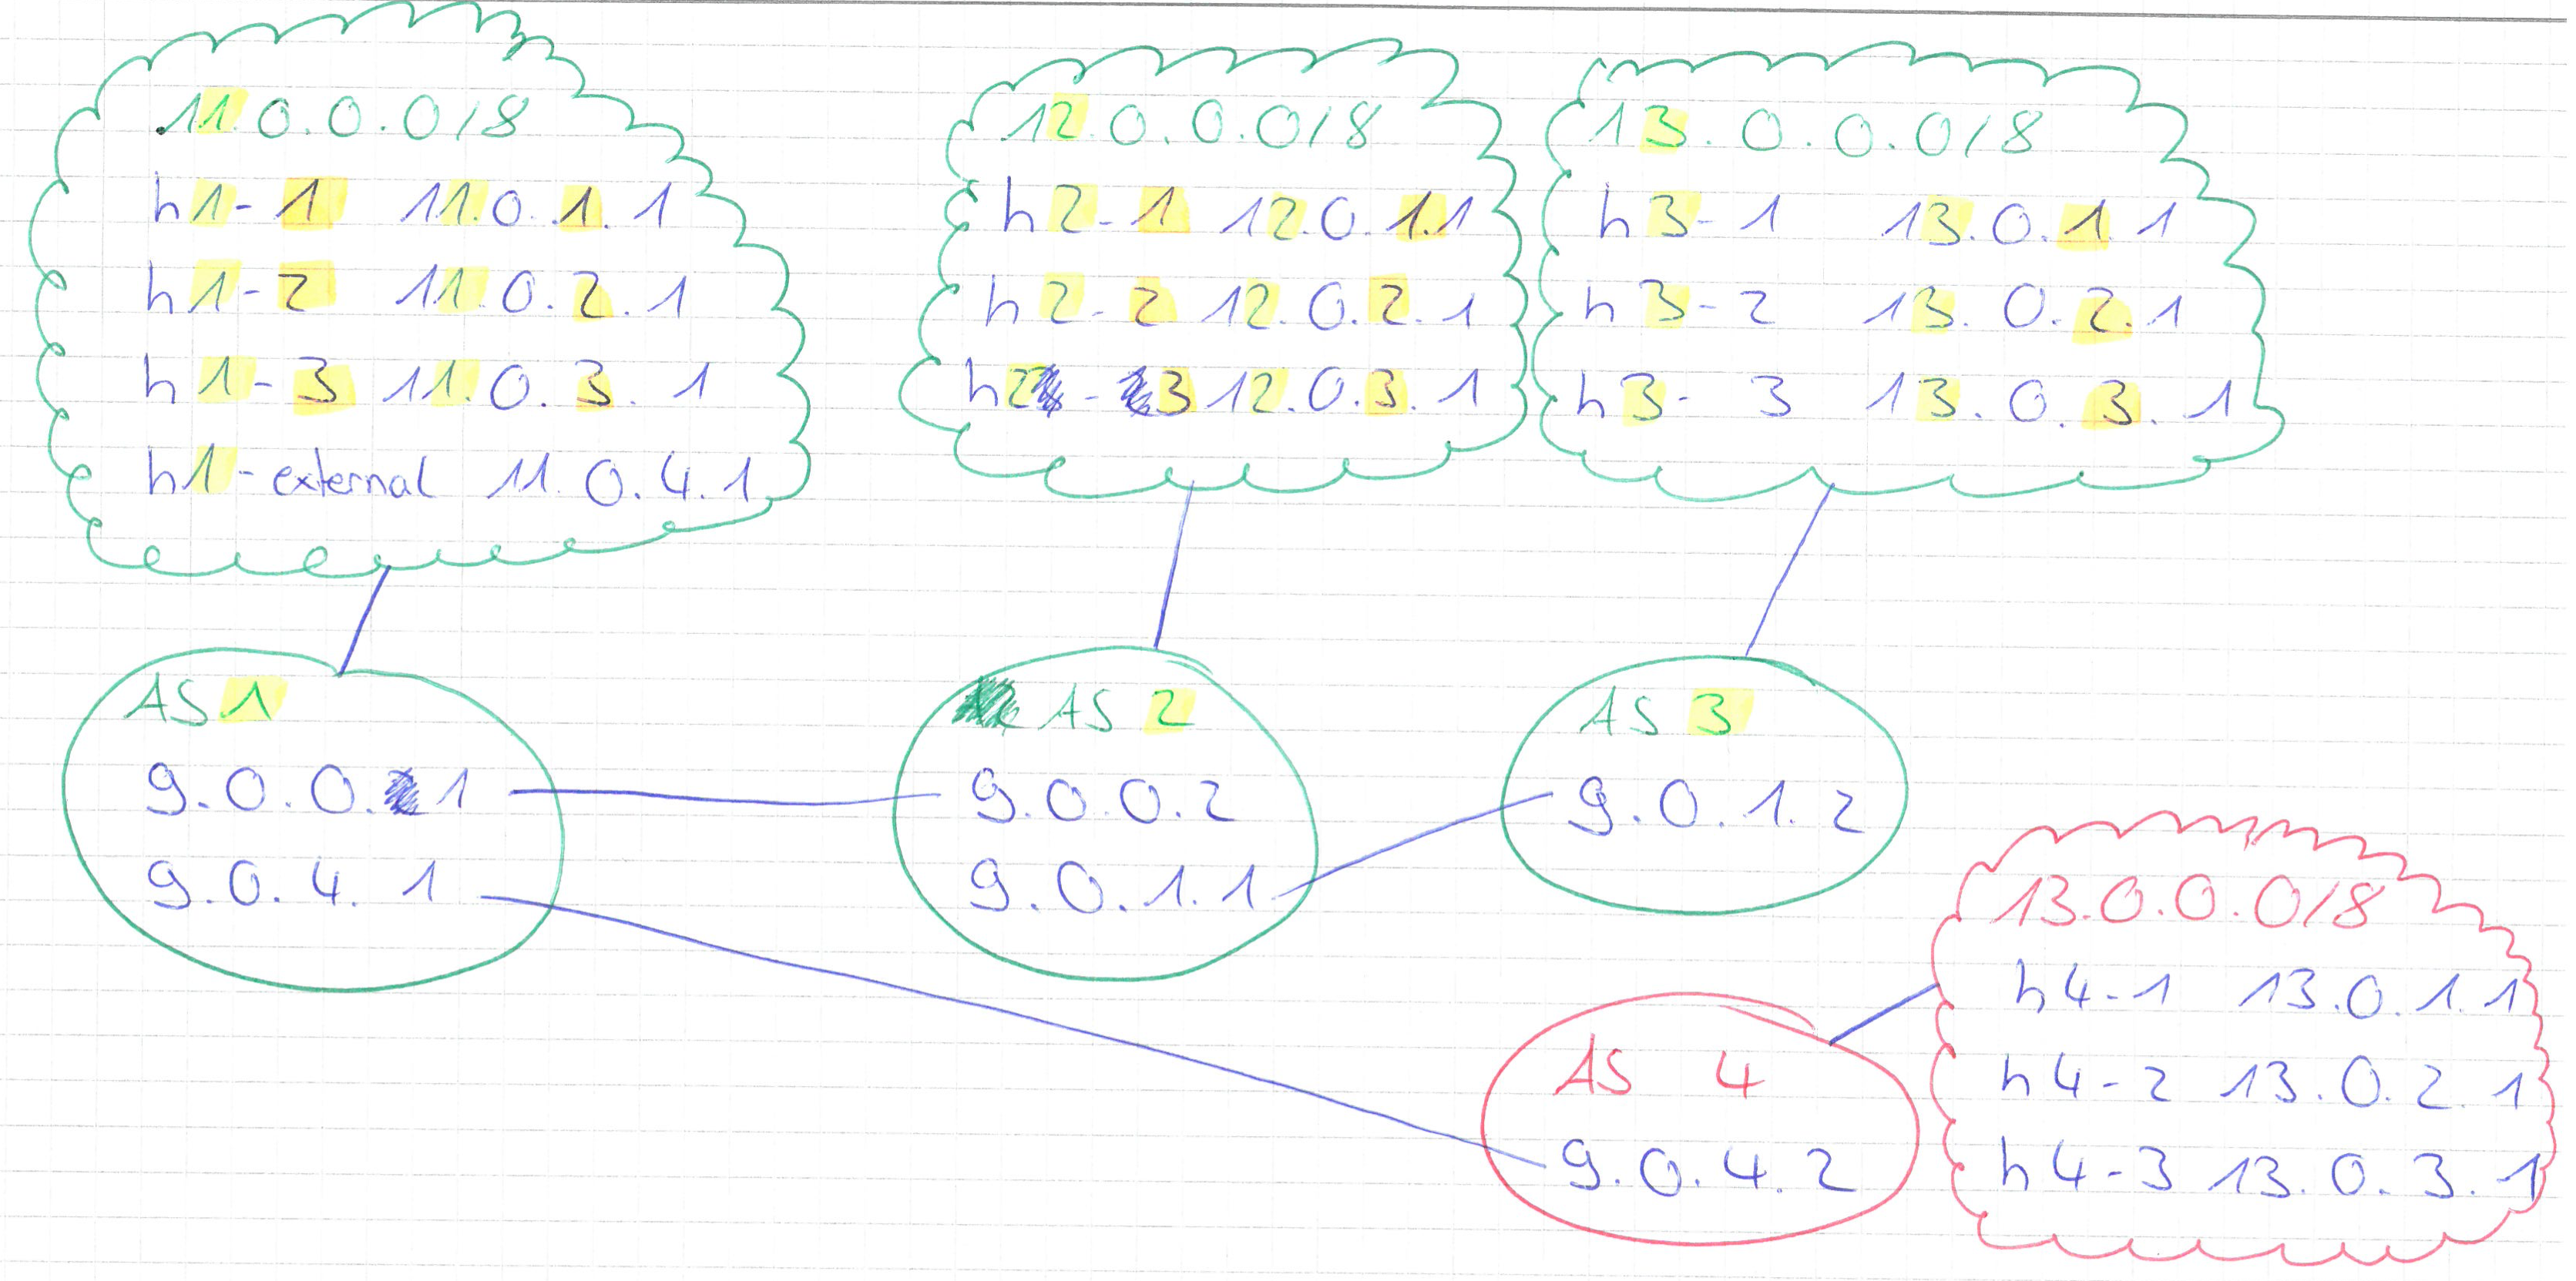 11.0.0.0/8
h1-1 11.0.1.1
h1-2 11.0.2.1
h1-3 11.0.3.1
h1-external 11.0.4.1
12.0.0.0/8
h2-1 12.0.1.1
h2-2 12.0.2.1
h2-3 12.0.3.1
13.0.0.0/8
h3-1 13.0.1.1
h3-2 13.0.2.1
h3-3 13.0.3.1
AS 1
9.0.0.1
9.0.4.1
AS 2
9.0.0.2
9.0.1.1
AS 3
9.0.1.2
AS 4
9.0.4.2
13.0.0.0/8
h4-1 13.0.1.1
h4-2 13.0.2.1
h4-3 13.0.3.1